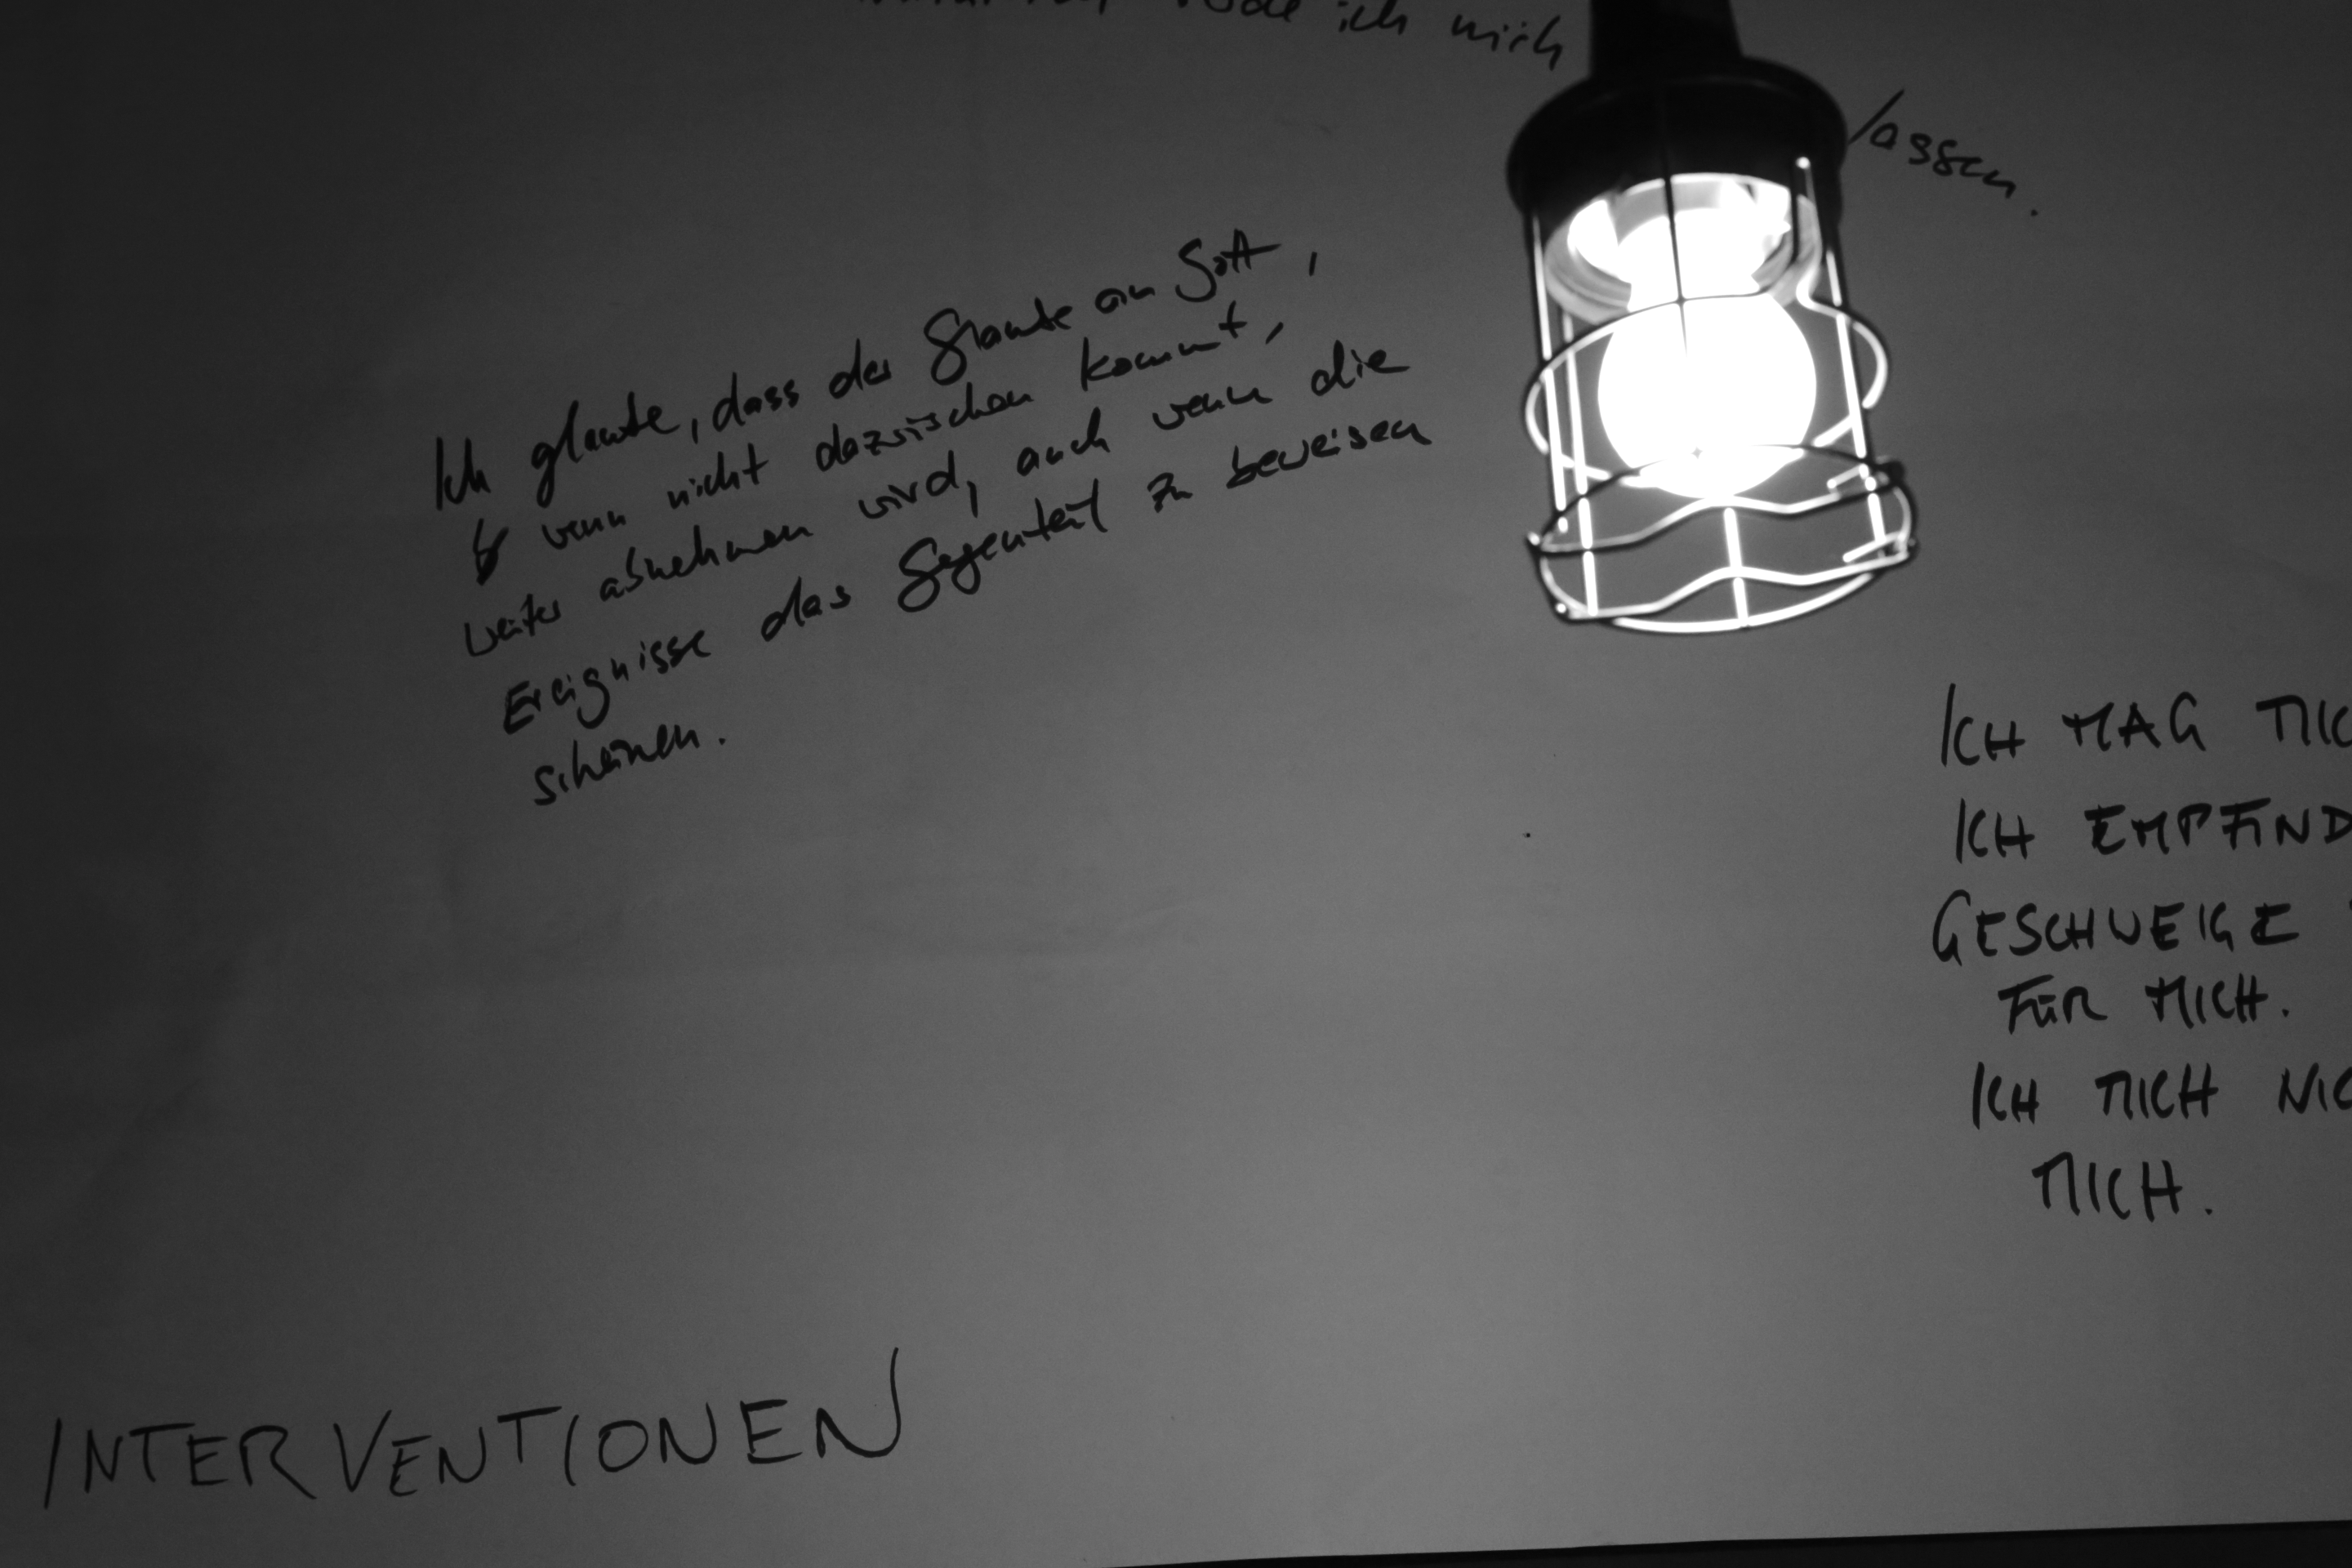 ich mich
lassen.
Ich glaube, dass der Glaube an Gott,
wenn nicht dazwischen kommt,
weiter abnehmen wird, auch wenn die
Ereignisse das Gegenteil zu beweisen
scheinen.
ICH MAG MIC
ICH EMPFIND
GESCHWEIGE
FÜR MICH.
ICH MICH NIC
MICH.
INTERVENTIONEN